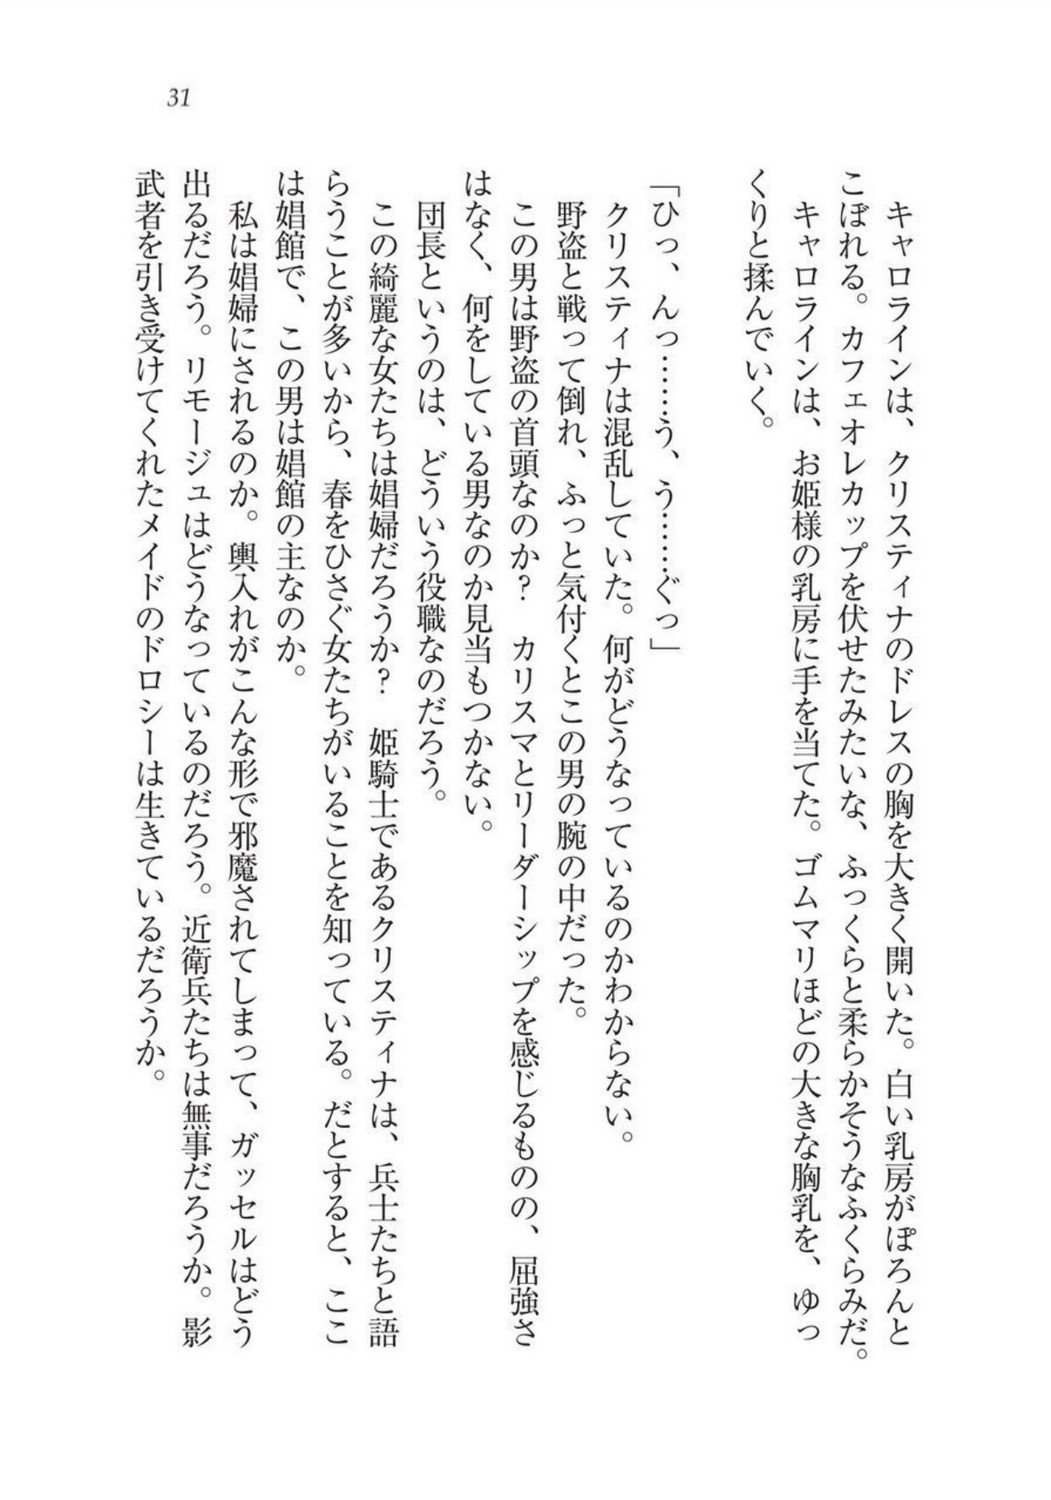 31
キャロラインは、クリスティナのドレスの胸を大きく開いた。白い乳房がぽろんと
こぼれる。カフェオレカップを伏せたみたいな、ふっくらと柔らかそうなふくらみだ。
キャロラインは、お姫様の乳房に手を当てた。ゴムマリほどの大きな胸乳を、ゆっ
くりと揉んでいく。
「ひっ、んっ……う、う……ぐっ」
クリスティナは混乱していた。何がどうなっているのかわからない。
野盗と戦って倒れ、ふっと気付くとこの男の腕の中だった。
この男は野盗の首頭なのか？　カリスマとリーダーシップを感じるものの、屈強さ
はなく、何をしている男なのか見当もつかない。
団長というのは、どういう役職なのだろう。
この綺麗な女たちは娼婦だろうか？　姫騎士であるクリスティナは、兵士たちと語
らうことが多いから、春をひさぐ女たちがいることを知っている。だとすると、ここ
は娼館で、この男は娼館の主なのか。
私は娼婦にされるのか。輿入れがこんな形で邪魔されてしまって、ガッセルはどう
出るだろう。リモージュはどうなっているのだろう。近衛兵たちは無事だろうか。影
武者を引き受けてくれたメイドのドロシーは生きているだろうか。